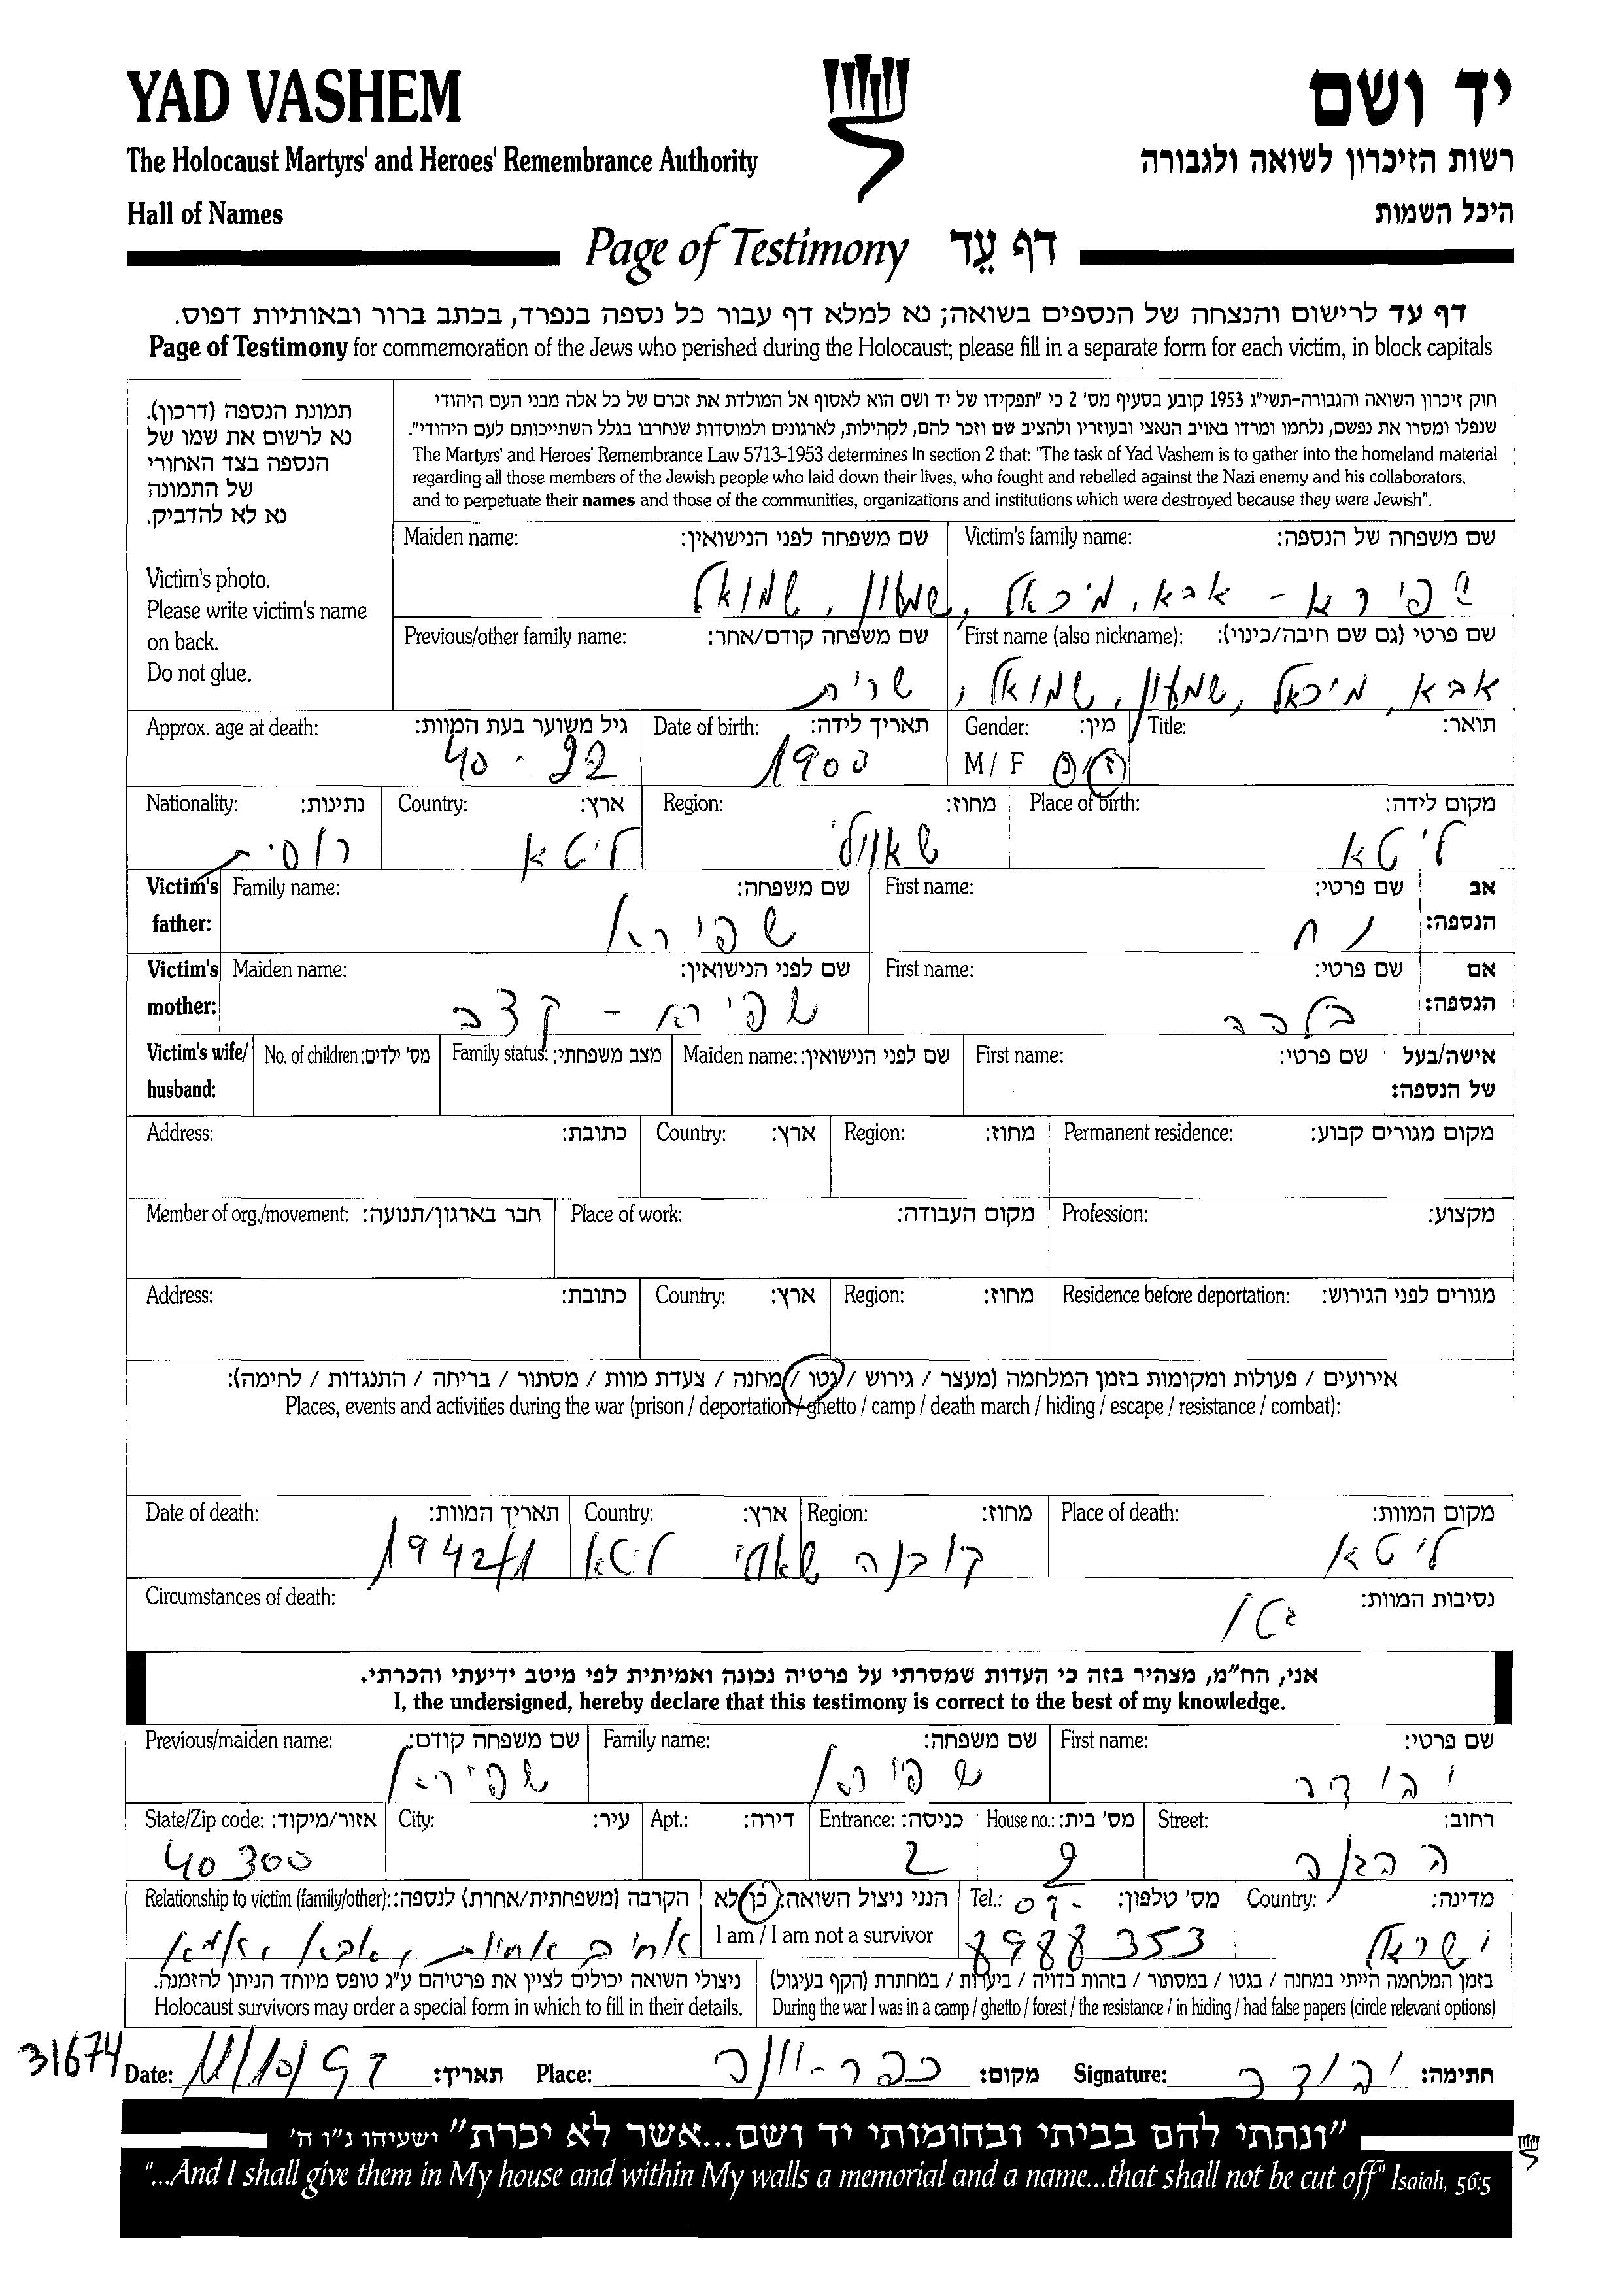 YAD VASHEM
יד ושם
The Holocaust Martyrs' and Heroes' Remembrance Authority
רשות הזיכרון לשואה ולגבורה
Hall of Names
היכל השמות
Page of Testimony דף עֵד
דף עד לרישום והנצחה של הנספים בשואה; נא למלא דף עבור כל נספה בנפרד, בכתב ברור ובאותיות דפוס.
Page of Testimony for commemoration of the Jews who perished during the Holocaust; please fill in a separate form for each victim, in block capitals
תמונת הנספה (דרכון).
נא לרשום את שמו של
הנספה בצד האחורי
של התמונה
נא לא להדביק.
Victim's photo.
Please write victim's name
on back.
Do not glue.
חוק זיכרון השואה והגבורה-תשי"ג 1953 קובע בסעיף מס' 2 כי "תפקידו של יד ושם הוא לאסוף אל המולדת את זכרם של כל אלה מבני העם היהודי
שנפלו ומסרו את נפשם, נלחמו ומרדו באויב הנאצי ובעוזריו ולהציב שם וזכר להם, לקהילות, לארגונים ולמוסדות שנחרבו בגלל השתייכותם לעם היהודי".
The Martyrs' and Heroes' Remembrance Law 5713-1953 determines in section 2 that: "The task of Yad Vashem is to gather into the homeland material
regarding all those members of the Jewish people who laid down their lives, who fought and rebelled against the Nazi enemy and his collaborators,
and to perpetuate their names and those of the communities, organizations and institutions which were destroyed because they were Jewish".
שם משפחה של הנספה: Victim's family name: שם משפחה לפני הנישואין: Maiden name:
שפירא - אבא, מיכאל, שמעון, שמואל
שם פרטי (גם שם חיבה/כינוי): First name (also nickname): שם משפחה קודם/אחר: Previous/other family name:
אבא, מיכאל, שמעון, שמואל, שרית
תואר: Title: מין: Gender: תאריך לידה: Date of birth: גיל משוער בעת המוות: Approx. age at death:
ז/נ M / F 1900 40 - 22
מקום לידה: Place of birth: מחוז: Region: ארץ: Country: נתינות: Nationality:
ליטא שאוולי ליטא רוסית
אב שם פרטי: First name: שם משפחה: Family name: Victim's
הנספה: נח שפירא father:
אם שם פרטי: First name: שם לפני הנישואין: Maiden name: Victim's
הנספה: שפירא - קצב mother:
אישה/בעל שם פרטי: First name: שם לפני הנישואין: Maiden name: מצב משפחתי: Family status: מס' ילדים: No. of children: Victim's wife/
של הנספה: husband:
מקום מגורים קבוע: Permanent residence: מחוז: Region: ארץ: Country: כתובת: Address:
מקצוע: Profession: מקום העבודה: Place of work: חבר בארגון/תנועה: Member of org./movement:
מגורים לפני הגירוש: Residence before deportation: מחוז: Region: ארץ: Country: כתובת: Address:
אירועים / פעולות ומקומות בזמן המלחמה (מעצר / גירוש / גטו / מחנה / צעדת מוות / מסתור / בריחה / התנגדות / לחימה):
Places, events and activities during the war (prison / deportation / ghetto / camp / death march / hiding / escape / resistance / combat):
מקום המוות: Place of death: מחוז: Region: ארץ: Country: תאריך המוות: Date of death:
ליטא קובנה ליטא
נסיבות המוות: Circumstances of death:
גטו
אני, הח"מ, מצהיר בזה כי העדות שמסרתי על פרטיה נכונה ואמיתית לפי מיטב ידיעתי והכרתי.
I, the undersigned, hereby declare that this testimony is correct to the best of my knowledge.
שם פרטי: First name: שם משפחה: Family name: שם משפחה קודם: Previous/maiden name:
שפירא שפירא
רחוב: Street: מס' בית: House no.: כניסה: Entrance: דירה: Apt.: עיר: City: אזור/מיקוד: State/Zip code:
ההגנה 9 2 40300
מדינה: Country: מס' טלפון: Tel.: הנני ניצול השואה: כן/לא הקרבה (משפחתית/אחרת) לנספה: Relationship to victim (family/other):
ישראל 09- 8988353 I am / I am not a survivor אבא, אמא
בזמן המלחמה הייתי במחנה / בגטו / במסתור / בזהות בדויה / ביערות / במחתרת (הקף בעיגול)
During the war I was in a camp / ghetto / forest / the resistance / in hiding / had false papers (circle relevant options)
ניצולי השואה יכולים לציין את פרטיהם ע"ג טופס מיוחד הניתן להזמנה.
Holocaust survivors may order a special form in which to fill in their details.
31674
חתימה: Signature: מקום: כפר-יונה Place: תאריך: 11/10/97 Date:
"ונתתי להם בביתי ובחומותי יד ושם...אשר לא יכרת" ישעיהו נ"ו ה'
"...And I shall give them in My house and within My walls a memorial and a name...that shall not be cut off" Isaiah, 56:5